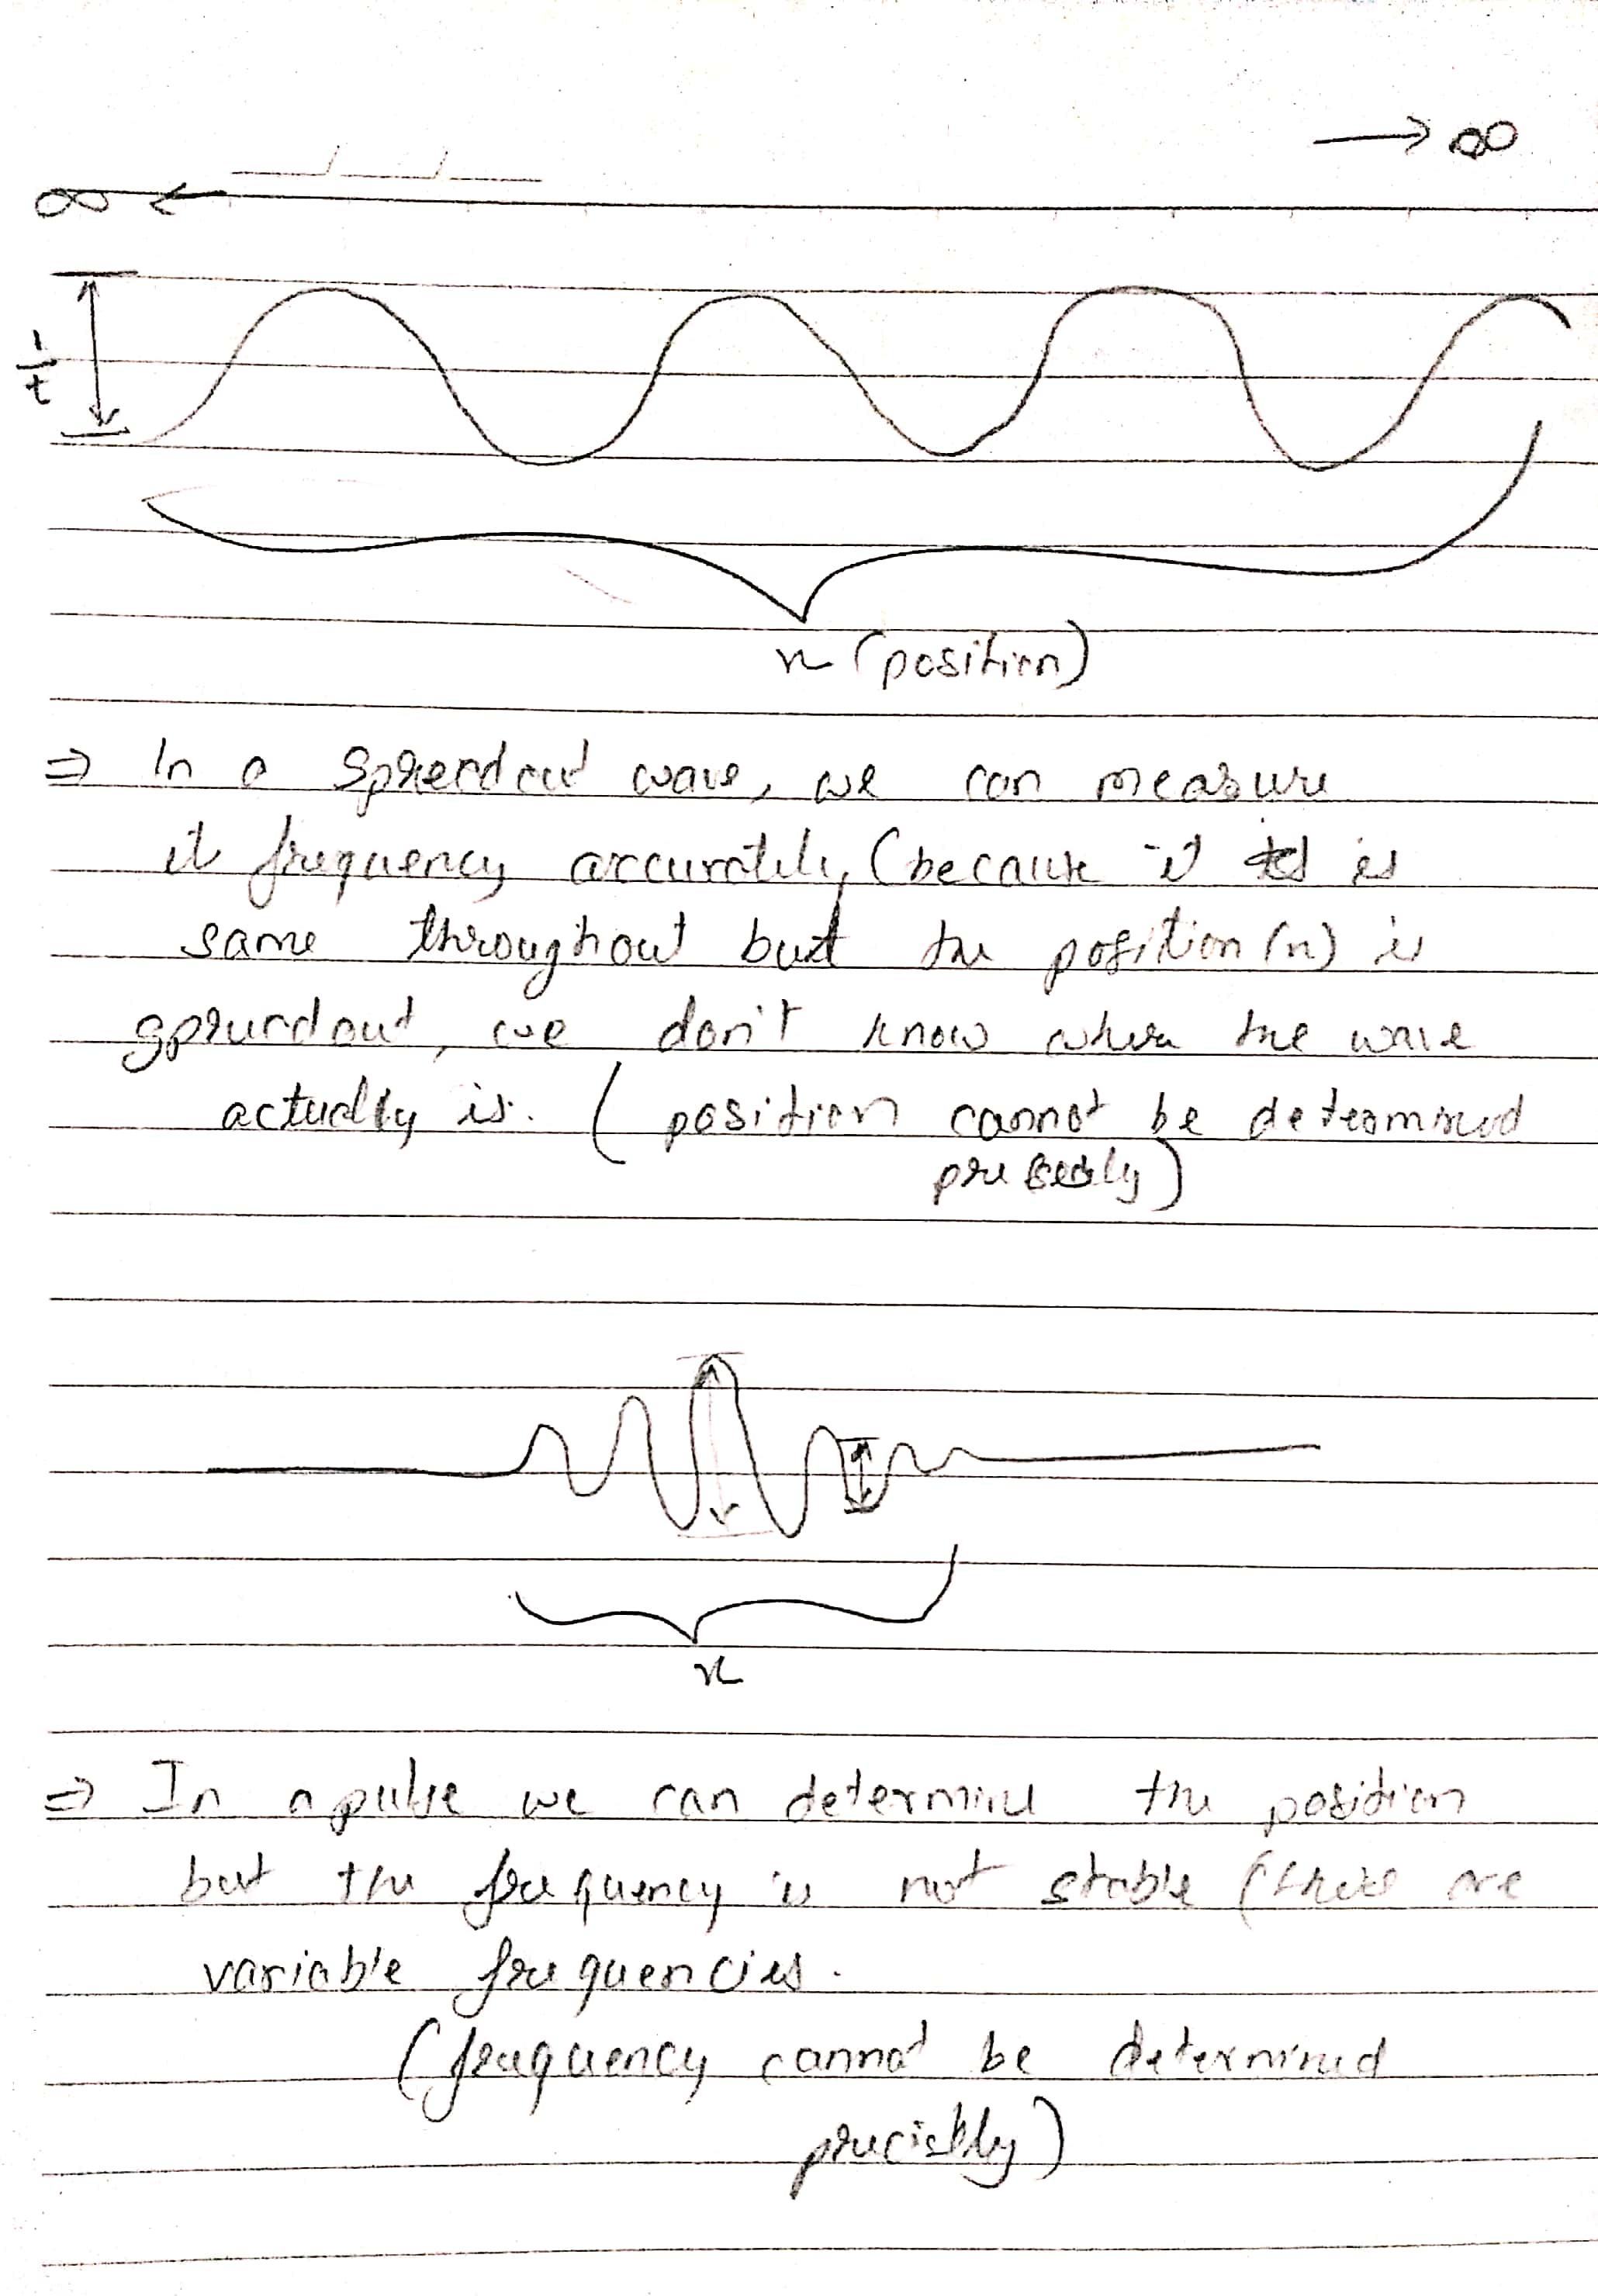 → ∞
∞ ←
1/t
x (position)
⇒ In a spreadout wave, we can measure
it frequency accurately (because it is
same throughout but the position (x) is
spreadout, we don't know where the wave
actually is. ( position cannot be determined
precisely)
x
⇒ In a pulse we can determine the position
but the frequency is not stable (there are
variable frequencies.
(frequency cannot be determined
precisely)